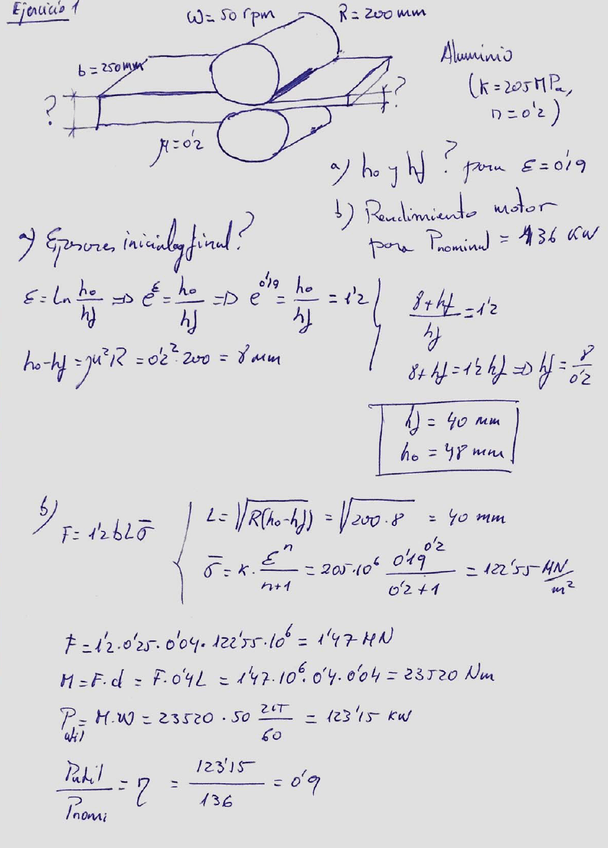 Ejercicio 1
ω = 50 rpm
R = 200 mm
b = 250mm
Aluminio
(K = 205 MPa,
n = 0'2)
?
?
μ = 0'2
a) ho y hf ? para ε = 0'19
b) Rendimiento motor
para Pnominal = 136 KW
a) Espesores inicial y final?
ε = Ln ho/hf => e^ε = ho/hf => e^0'19 = ho/hf = 1'2
ho-hf = μ²R = 0'2²·200 = 8 mm
8+hf/hf = 1'2
8+hf = 1'2 hf => hf = 8/0'2
hf = 40 mm
ho = 48 mm
b)
F = 1'2 b L σ̄
L = √R(ho-hf) = √200·8 = 40 mm
σ̄ = K · ε^n/n+1 = 205·10^6 0'19^0'2/0'2+1 = 122'55 MN/m²
F = 1'2·0'25·0'04·122'55·10^6 = 1'47 MN
M = F·d = F·0'4L = 1'47·10^6·0'4·0'04 = 23520 Nm
Pútil = M·ω = 23520 · 50 2π/60 = 123'15 KW
Pútil/Pnomi = η = 123'15/136 = 0'9